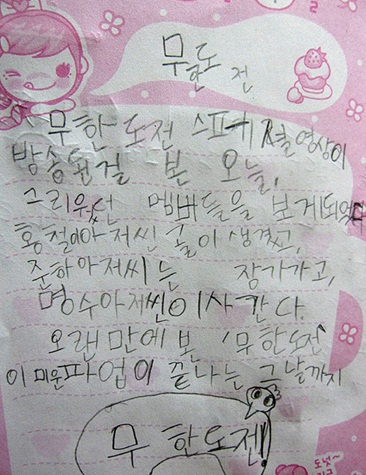 무도
한 전
무한도전 스페셜영상이
방송된걸 본 오늘,
그리웠던 멤버들을 보게되었다
홍철아저씬 생겼고,
준하아저씨는 장가가고,
명수아저씬 이사 간다.
오랜만에 본 '무한도전'
이 미운파업이 끝나는 그날까지
무한도전!
도넛~